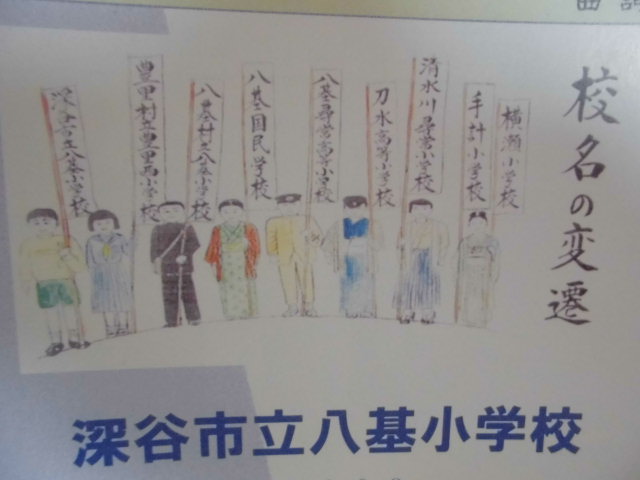 校名の変遷
横瀬小学校
手計小学校
清水川尋常小学校
刀水高等小学校
八基尋常高等小学校
八基国民学校
八基村立八基小学校
豊里村立豊里西小学校
深谷市立八基小学校
深谷市立八基小学校